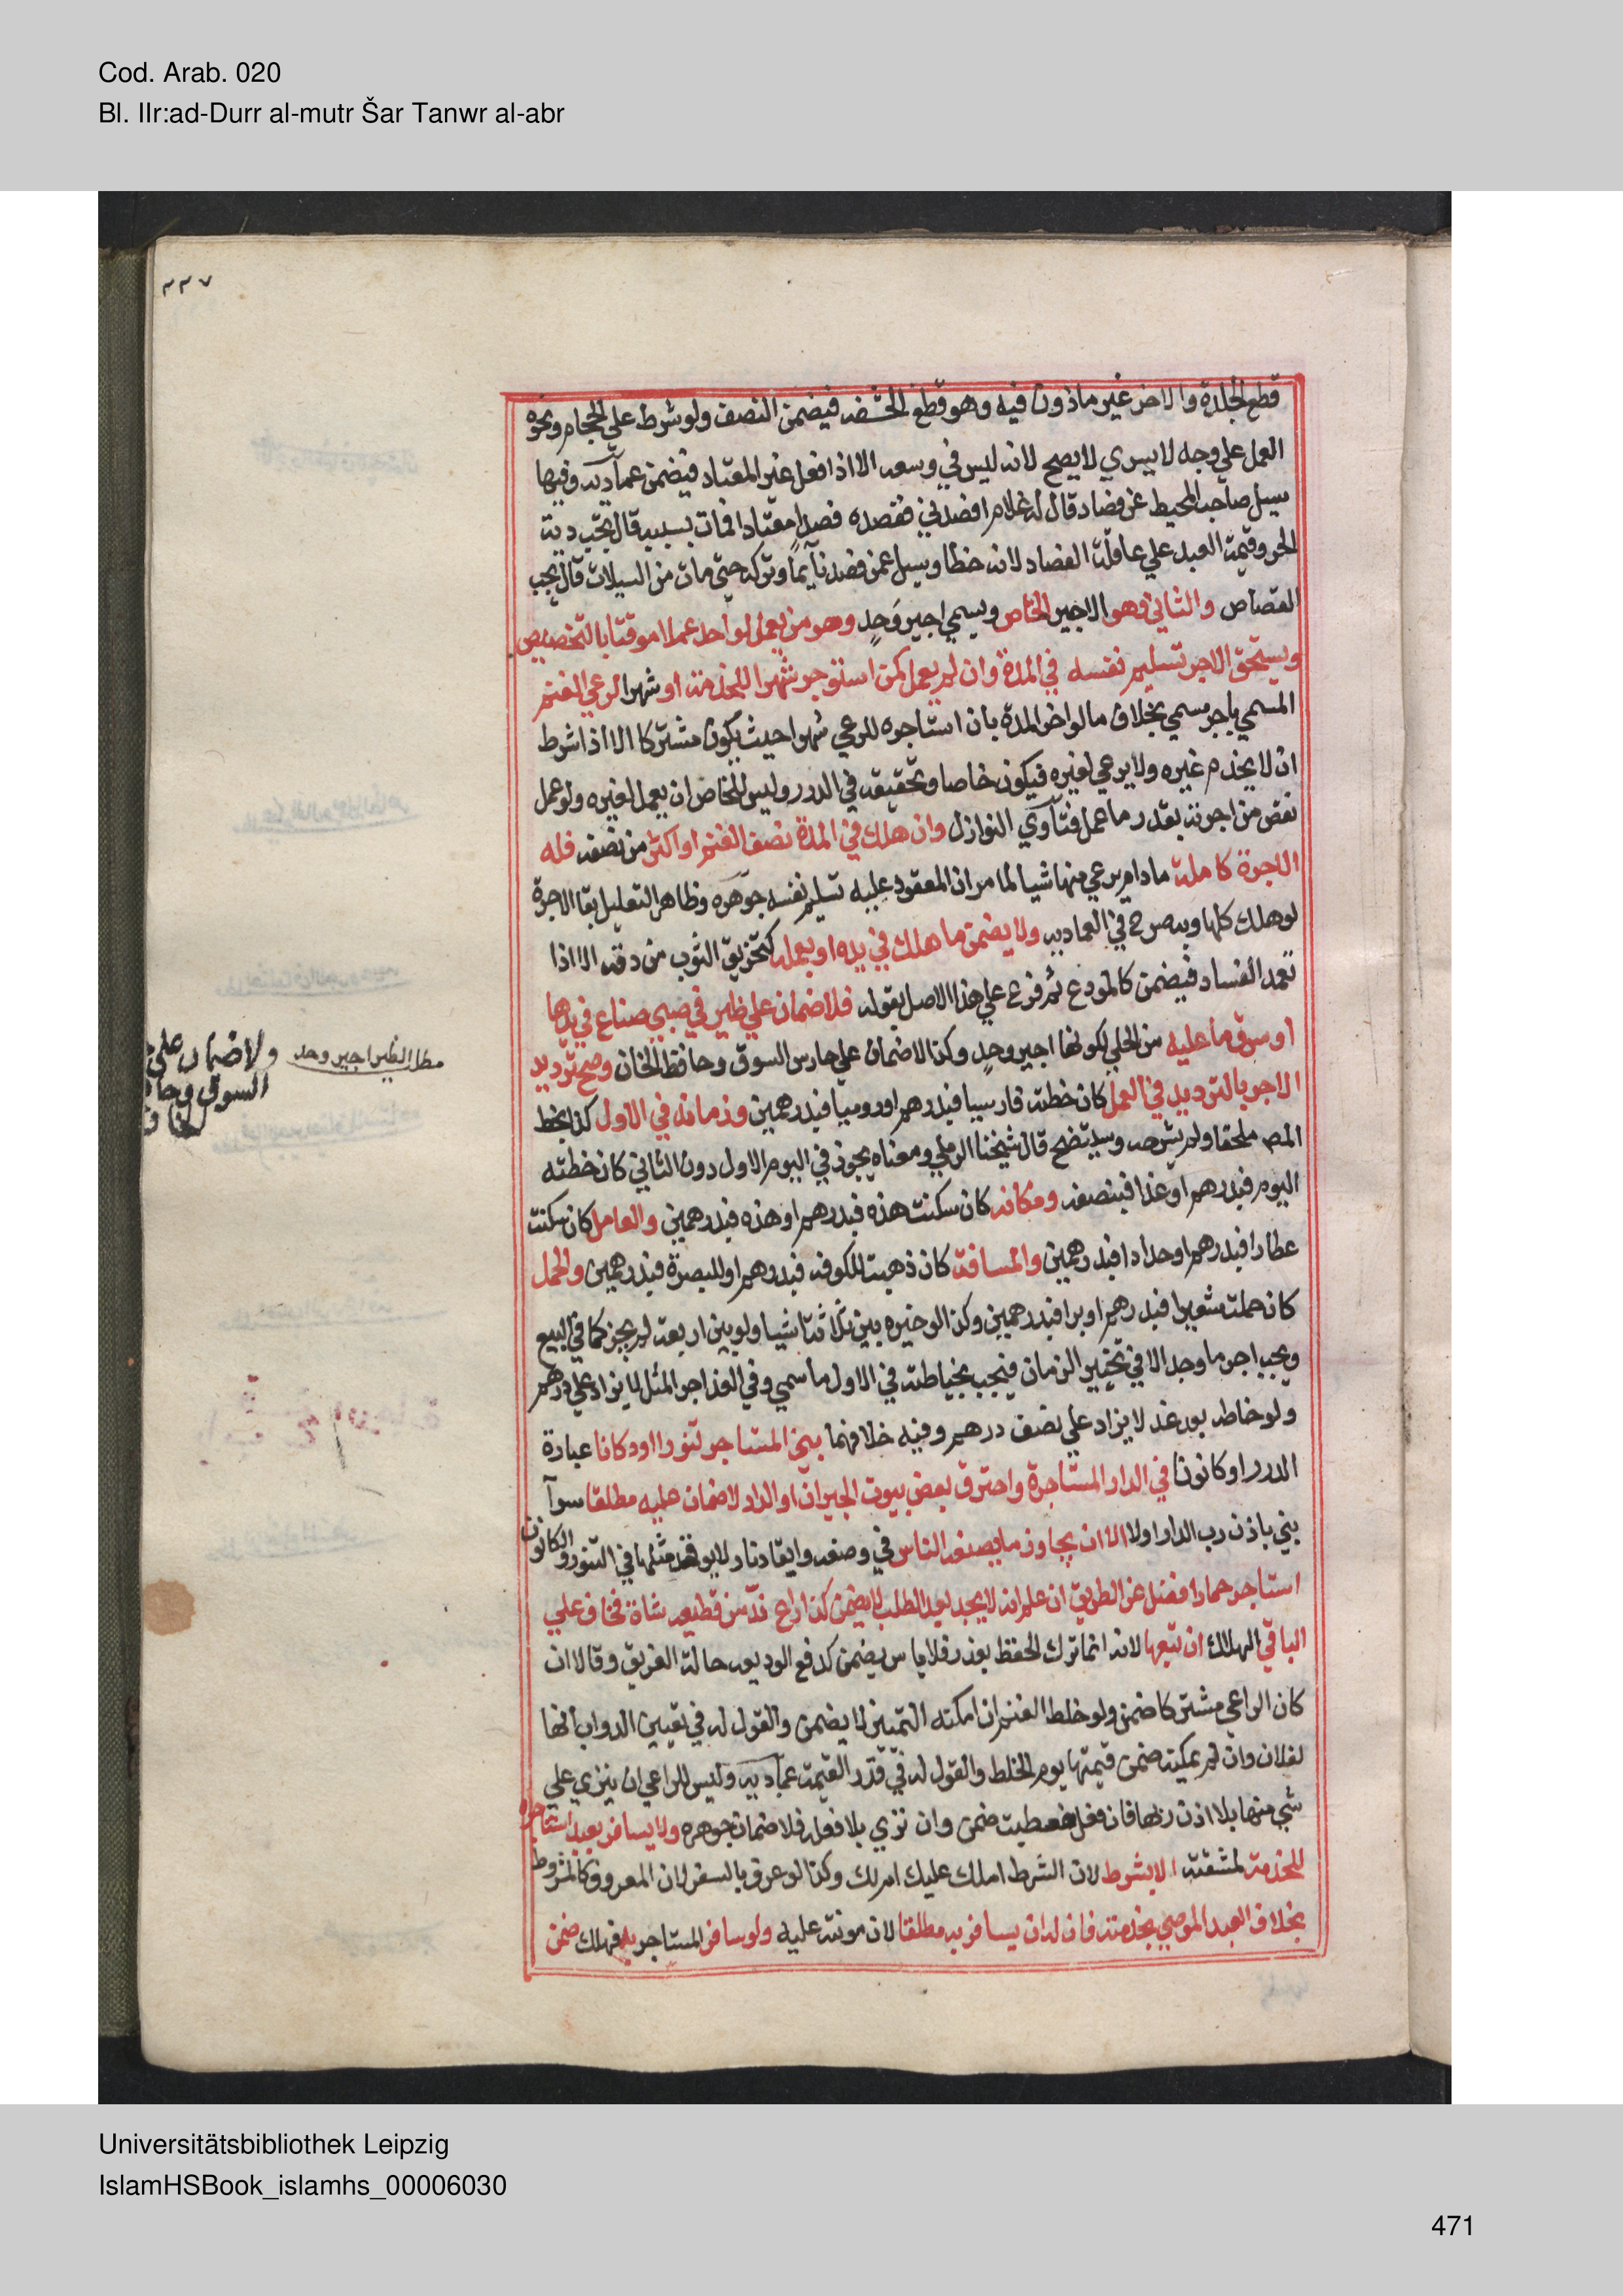 Cod. Arab. 020
Bl. IIr:ad-Durr al-mutr Šar Tanwr al-abr
٢٢٧
قطع الجلدة والاخر غير ماذون فيه وهو قطع الحشفه فيضمن النصف ولو شرط علي الحجام ونحوه
العمل علي وجه لا يسري لا يصح لانه ليس في وسعه الا اذا فعل غير المعتاد فيضمن عماديه وفيها
سيل صاحب المحيط عن فصاد قال له غلام افصدني ففصده فصدا معتادا فمات بسببه قال تجب دية
الحر وقيمة العبد علي عاقلة الفصاد لانه خطأ وسيل عمن فصد نايما وتركه حتي مات من السيلان قال يجب
القصاص والثاني وهو الاجير الخاص ويسمي اجير وحد وهو من يعمل لواحد عملا موقتا بالتخصيص
ويستحق الاجر بتسليم نفسه في المدة وان لم يعمل كمن استوجر شهرا للخدمة او شهرا لرعي الغنم
المسمي باجر مسمي بخلاف ما لو اخر المدة بان استاجره للرعي شهرا حيث يكون مشتركا الا اذا شرط
ان لا يخدم غيره ولا يرعي لغيره فيكون خاصا وتحقيقه في الدرر وليس للخاص ان يعمل لغيره ولو عمل
نقص من اجرته بقدر ما عمل فتاوي النوازل وان هلك في المدة نصف الغنم او اكثر من نصفه فله
الاجرة كاملة ما دام يرعي منها شيا لما مر ان المعقود عليه تسليم نفسه جوهره وظاهر التعليل بقا الاجرة
لو هلك كلها وبه صرح في العماديه ولا يضمن ما هلك في يده او بعمله كتخريق الثوب من دقه الا اذا
تعمد الفساد فيضمن كالمودع ثم فرع علي هذا الاصل بقوله فلا ضمان علي ظير في صبي ضاع في يدها
او سرق ما عليه من الحلي لكونها اجير وحد وكذا لا ضمان علي حارس السوق وحافظ الخان وصح ترديد
الاجر بالترديد في العمل كان خطته فارسيا فبدرهم او روميا فبدرهمين وزمانه في الاول كذا بخط
المص ملحقا ولم يشرحه وسيتضح قال شيخنا الرملي ومعناه يجوز في اليوم الاول دون الثاني كان خطته
اليوم فبدرهم او غدا فبنصفه ومكانه كان سكنت هذه فبدرهم او هذه فبدرهمين والعامل كان سكنت
عطارا فبدرهم او حدادا فبدرهمين والمسافة كان ذهبت للكوفه فبدرهم او للبصرة فبدرهمين والحمل
كان حملت شعيرا فبدرهم او برا فبدرهمين وكذا لو خيره بين ثلاثة اشيا ولو بين اربعة لم يجز كما في البيع
ويجب اجر ما وجد الا في تخيير الزمان فيجب بخياطته في الاول ما سمي وفي الغد اجر المثل لا يزاد علي درهم
ولو خاطه بعد غد لا يزاد علي نصف درهم وفيه خلافهما بني المستاجر تنورا او دكانا عبارة
الدرر او كانونا في الدار المستاجرة واحترق بعض بيوت الجيران او الدار لا ضمان عليه مطلقا سوآ
بني باذن رب الدار او لا الا ان يجاوز ما يصنعه الناس في وضعه وايقاد نار لا يوقد مثلها في التنور والكانون
استاجر حمارا فضل عن الطريق ان علم انه لا يجده بعد الطلب لا يضمن كذا راع ند من قطيعه شاة فخاف علي
الباقي الهلاك ان تبعها لانه انما ترك الحفظ بعذر فلا يضمن كدفع الوديعه حالة الغريق وقالا ان
كان الراعي مشتركا ضمن ولو خلط الغنم ان امكنه التمييز لا يضمن والقول له في تعيين الدواب انها
لفلان وان لم يمكنه ضمن قيمتها يوم الخلط والقول له في قدر القيمة عماديه وليس للراعي ان ينزي علي
شي منها بلا اذن ربها فان فعل فعطبت ضمن وان نزي بلا فعله فلا ضمان جوهره ولا يسافر بعبد استاجره
للخدمة لمشقته الا بشرط لان الشرط املك عليك ام لك وكذا لو عرف بالسفر لان المعروف كالمشروط
بخلاف العبد الموصي بخدمته فان له ان يسافر به مطلقا لان مونته عليه ولو سافر المستاجر به فهلك ضمن
مطل الظير اجير وحد
ولا ضمان علي
السوق وحا
الخان
Universitätsbibliothek Leipzig
IslamHSBook_islamhs_00006030
471